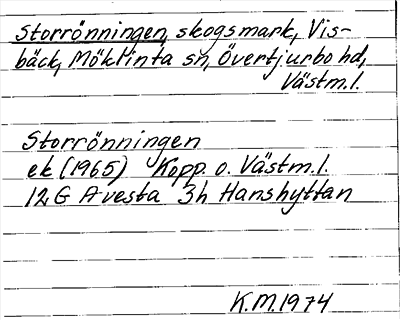 Storrönningen, skogsmark, Vis-
bäck, Möklinta sn, Övertjurbo hd,
Västm.l.
Storrönningen
ek (1965) Kopp. o. Västm.l.
12 G Avesta 3h Hanshyttan
K.M. 1974